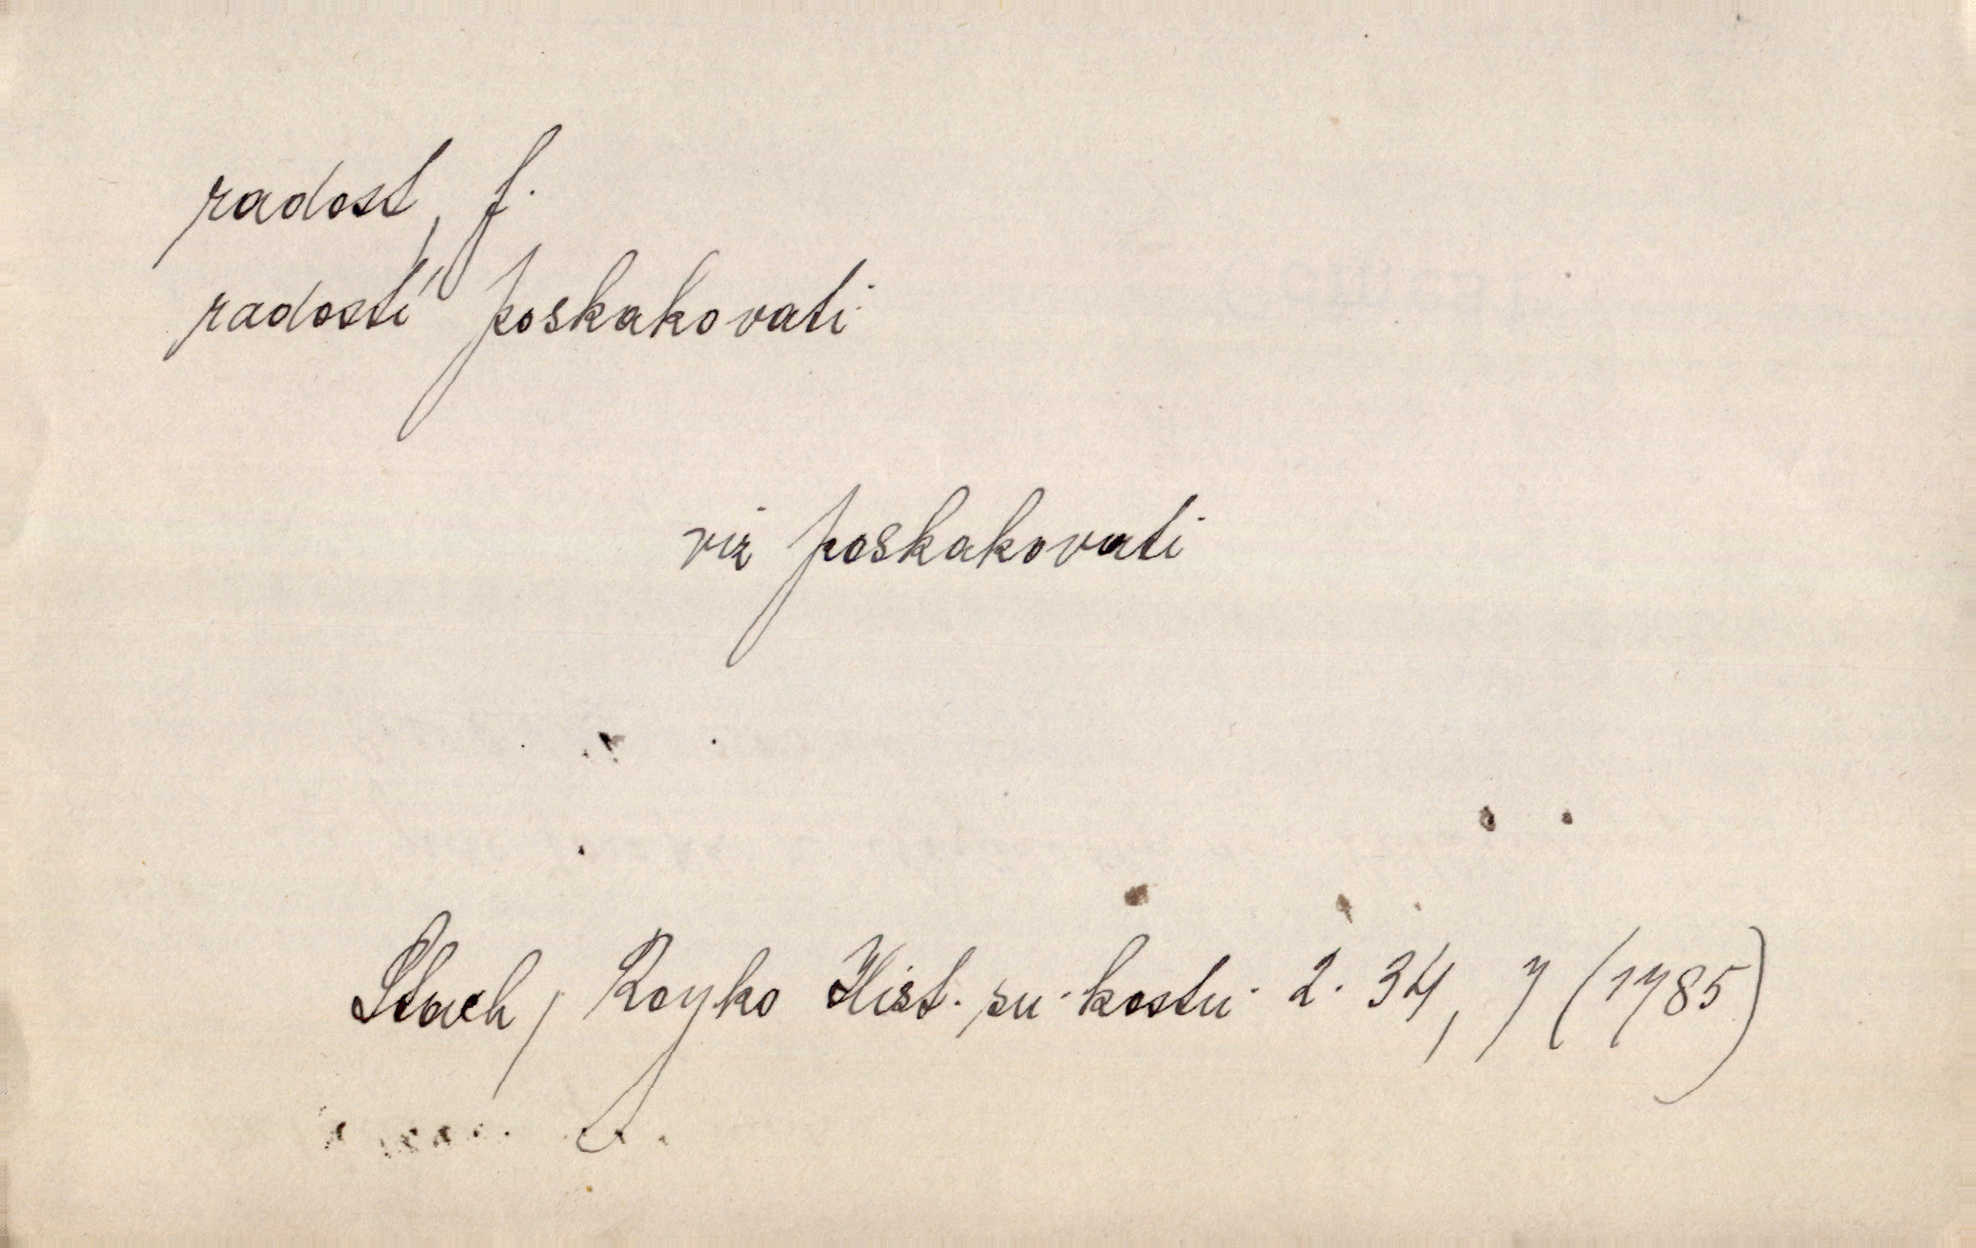 radost, f.
radostí poskakovati
viz poskakovati
Stach, Royko Hist. su. kostn. 2. 34, 7 (1785)